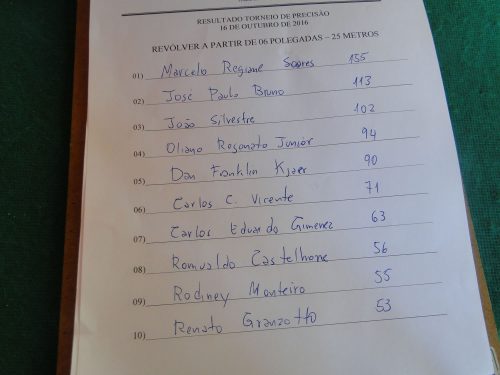 RESULTADO TORNEIO DE PRECISÃO
16 DE OUTUBRO DE 2016
REVÓLVER A PARTIR DE 06 POLEGADAS – 25 METROS
01) Marcelo Regiane Soares 155
02) José Paulo Bruno 113
03) João Silvestre 102
04) Oliano Rosonato Junior 94
05) Dan Franklin Kjaer 90
06) Carlos C. Vicente 71
07) Carlos Eduardo Gimenez 63
08) Romualdo Castelhone 56
09) Rodiney Monteiro 55
10) Renato Granzotto 53